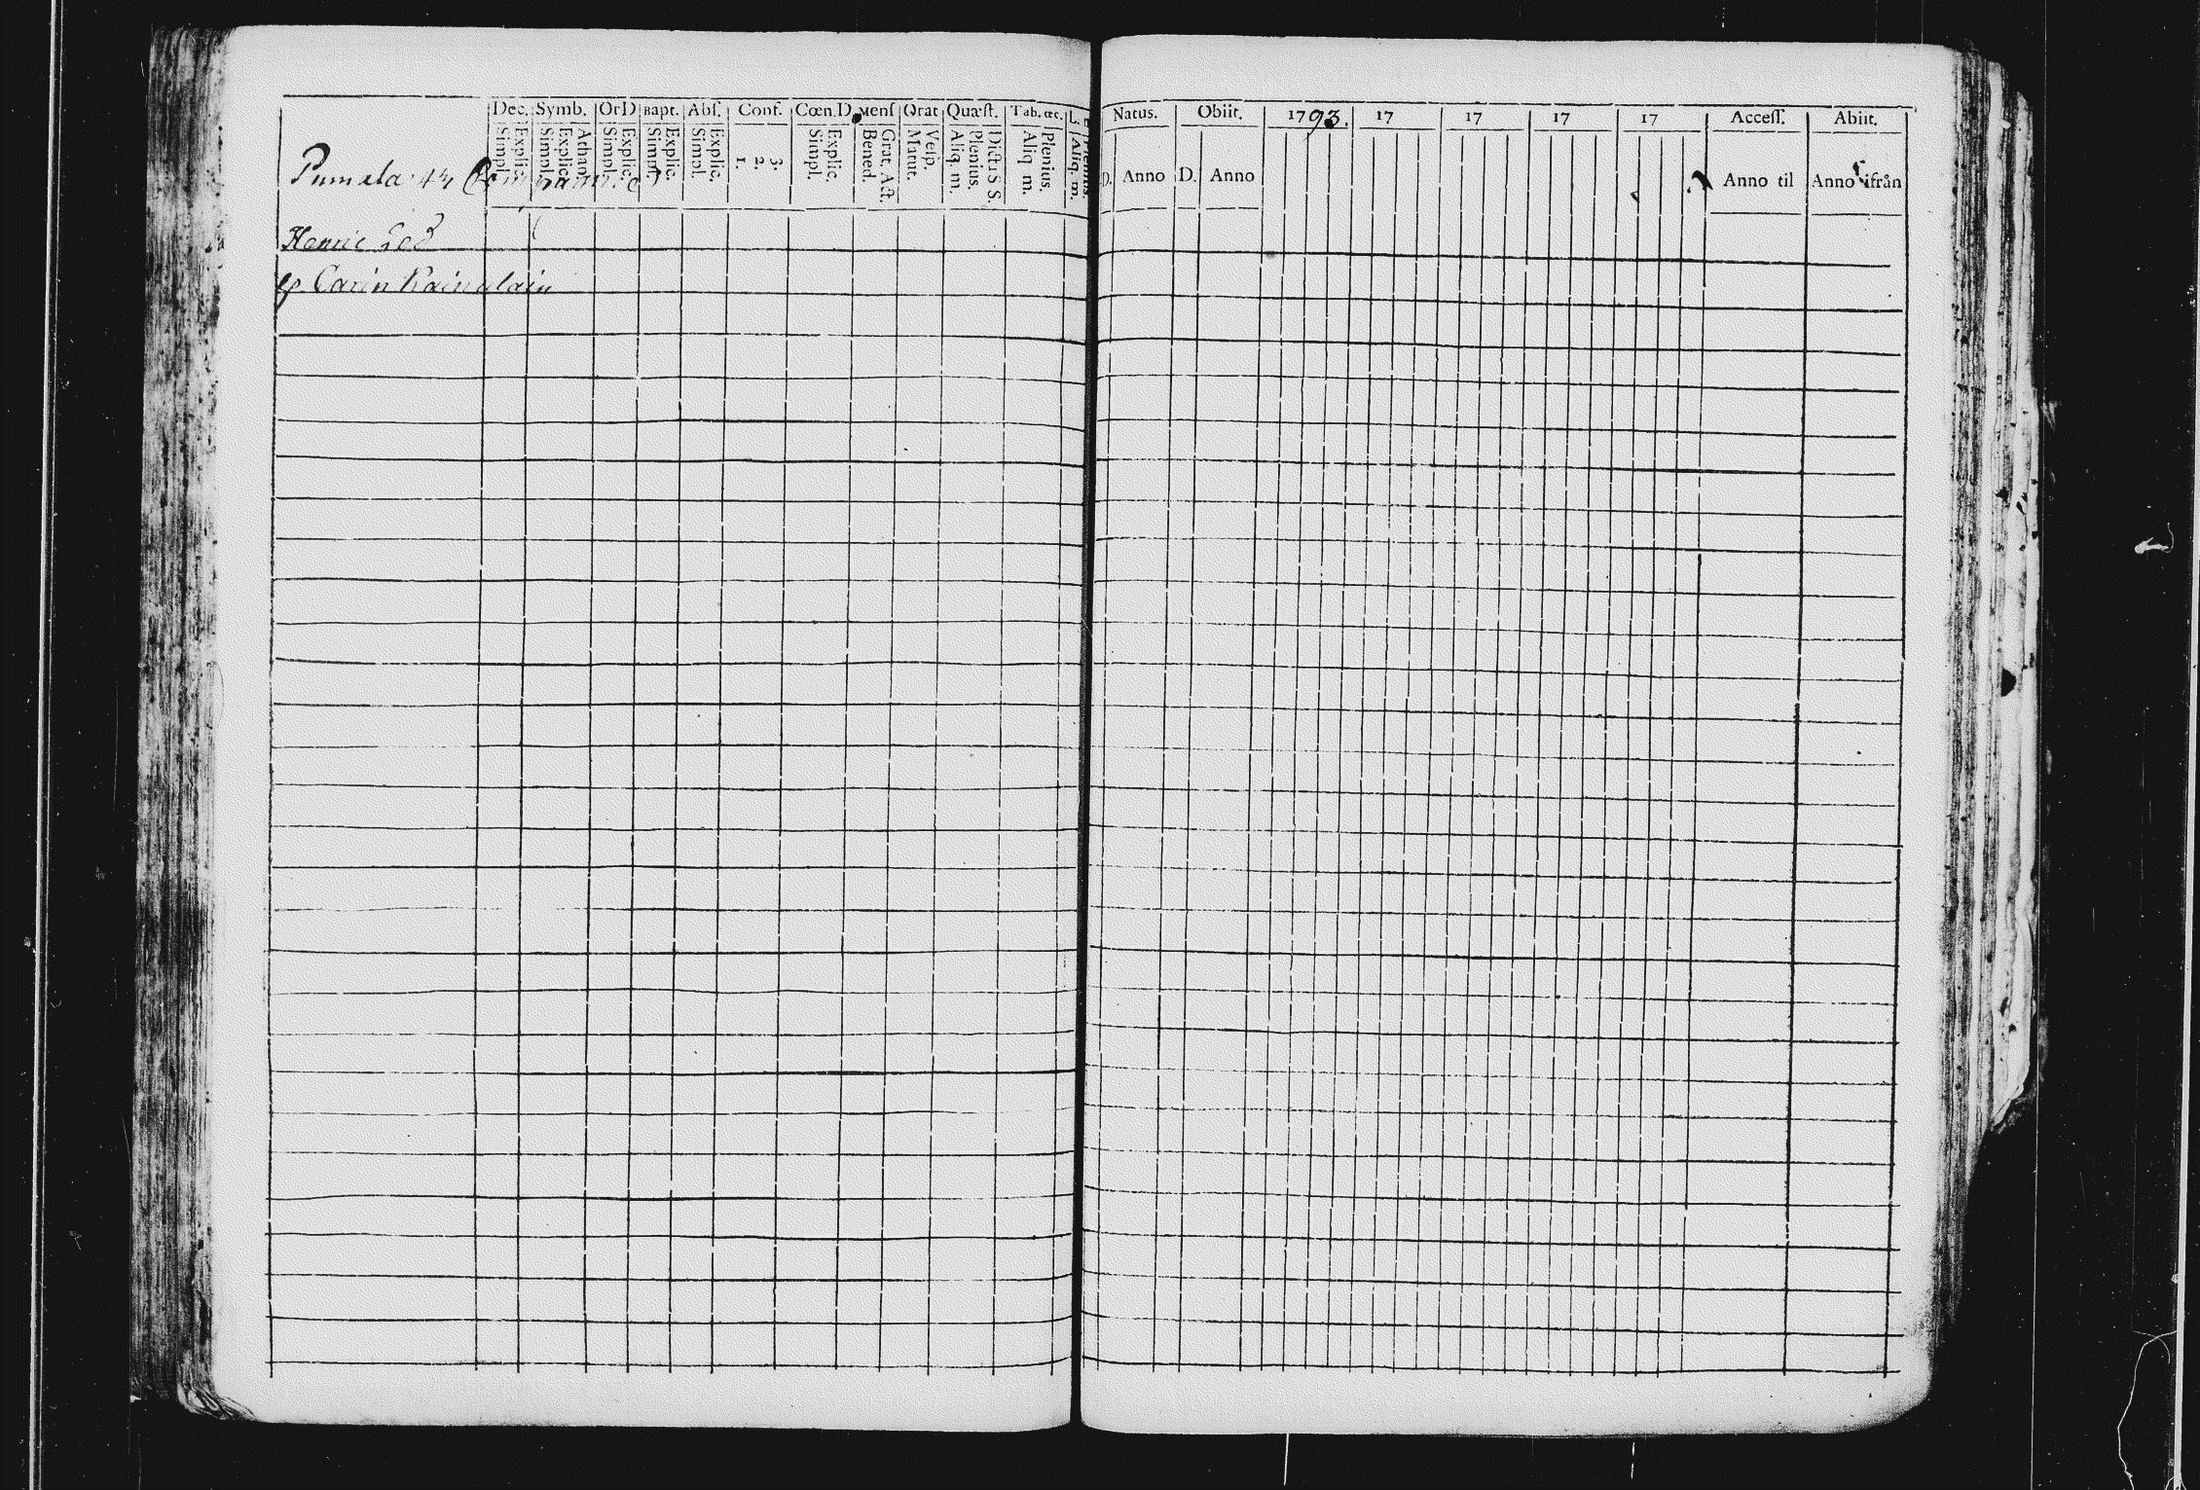 Dec. Symb. OrD Bapt. Abs. Conf. Cœn.D. Mens Orat Quæst. Tab. œc. L.
Simpl. Explic. Simpl. Explic. Athan. Simpl. Explic. Simpl. Explic. Simpl. Explic. 1. 2. 3. Simpl. Explic. Bened. Grat. Act. Matut. Vesp. Aliq. m. Plenius. Dictis S. S. Aliq. m. Plenius. Aliq. m. Plenius.
Pumala 44
Henric
h. Carin Kainulain
Natus. Obiit. 1793. 17 17 17 17 Access. Abiit.
D. Anno D. Anno Anno til Anno ifrån